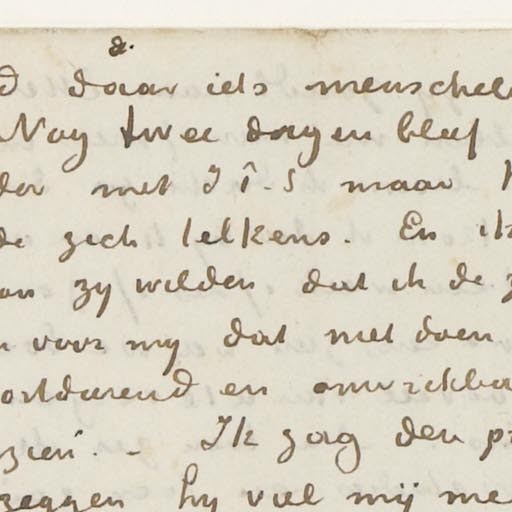 a.
d daar iets menschel
Nog twee dagen bleef
der met maar
de zich telkens. En ik
zy wilden dat ik de
voor my dat niet doen
ortdurend en onwrikba
zien. - Ik zag den pr
zeggen hy viel mij me